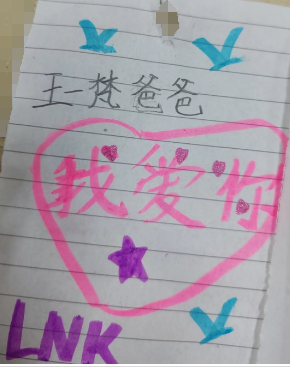 王一梵爸爸
我爱你
LNK